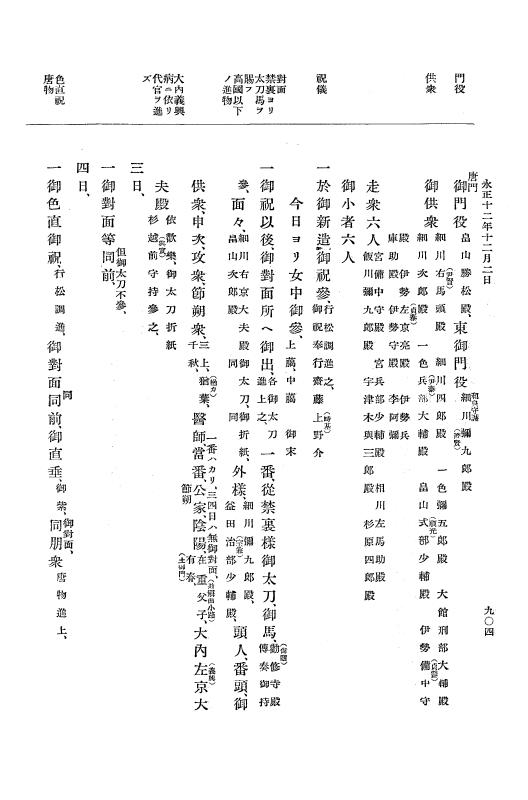 永正十二年十二月二日
九〇四
門役
供衆
祝儀
對面
禁裏ヨリ
太刀馬ヲ
賜フ
高國以下
ノ進物
大內義興
病ニ依リ
代官ヲ進
ズ
色直祝
唐物
唐門
御門役 畠山勝松殿、東御門役 細川彌九郎殿
御供衆 細川右馬頭殿 細川四郎殿 一色彌五郎殿 大館刑部大輔殿
細川次郎殿 一色兵部大輔殿 畠山式部少輔殿 伊勢備中守
殿 伊勢左京亮殿 伊勢兵
庫助殿 伊勢守殿 李阿彌
走衆六人 宮備中守殿 宮兵部少輔殿 相川左馬助殿
飯川彌九郎殿 宇津木與三郎殿 杉原四郎殿
御小者六人
一於御新造、御祝參、行松調進之、
御祝奉行齋藤上野介
今日ヨリ女中御參、上﨟、中﨟 御末
一御祝以後、御對面所ヘ御出、各御太刀
進上之、一番、從禁裏樣御太刀、御馬、勸修寺殿
傳奏御持
參、面々、細川右京大夫殿 御太刀、御折紙、
畠山次郎殿 同 同 外樣、細川彌九郎殿、
益田治部少輔殿、頭人、番頭、御
供衆、申次、攻衆、節朔衆、三上、
千秋、猶葉、醫師、當番、公家、陰陽、在重父子、
有春、大內左京大
一番ハカリ、三四日ハ無御對面、
節朔
夫殿 依歡樂、御太刀折紙
杉越前守持參之、
三日、
一御對面等同前、但御太刀不參、
四日、
一御色直御祝、行松調進、御對面同前、御直垂、御紫、御對面、
同 同朋衆 唐物進上、